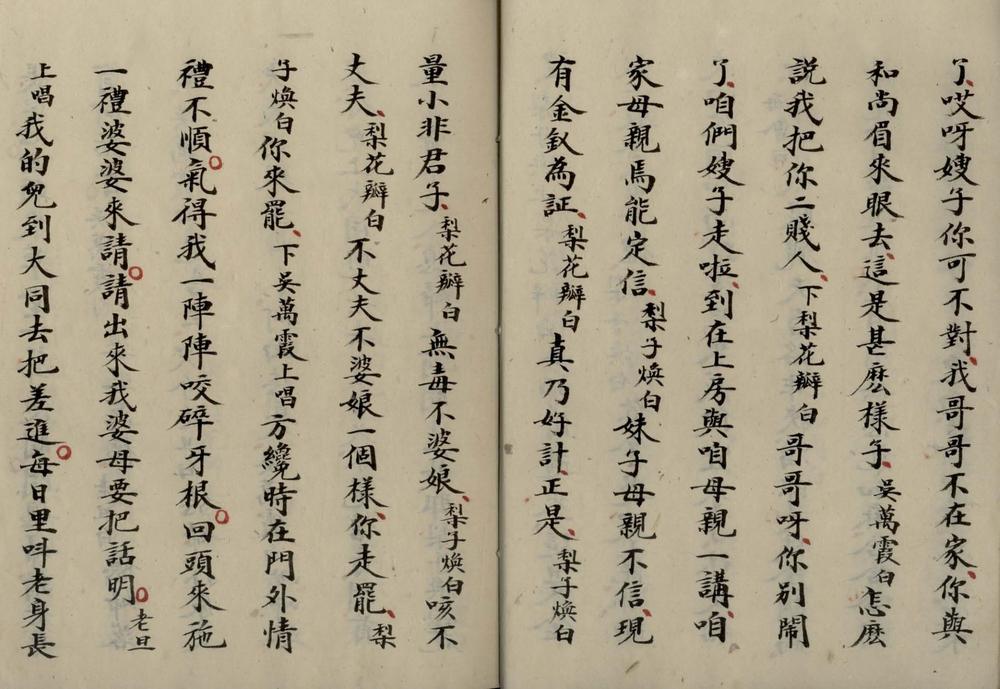 了、哎呀嫂子你可不對、我哥哥不在家、你與
和尚眉來眼去、這是甚麽樣子、吳萬霞白怎麽
說我把你二賤人、下梨花瓣白哥哥呀、你别鬧
了、咱們嫂子走啦、到在上房與咱母親一講、咱
家母親焉能定信、梨子煥白妹子母親不信、現
有金釵為証、梨花瓣白真乃好計、正是、梨子煥白
量小非君子、梨花瓣白無毒不婆娘、梨子煥白咳不
丈夫、梨花瓣白不丈夫不婆娘一個樣、你走罷、梨
子煥白你來罷、下吳萬霞上唱方纔時在門外情
禮不順○氣得我一陣陣咬碎牙根○回頭來施
一禮婆婆來請○請出來我婆母要把話明○老旦
上唱我的兒到大同去把差進○每日里呌老身長